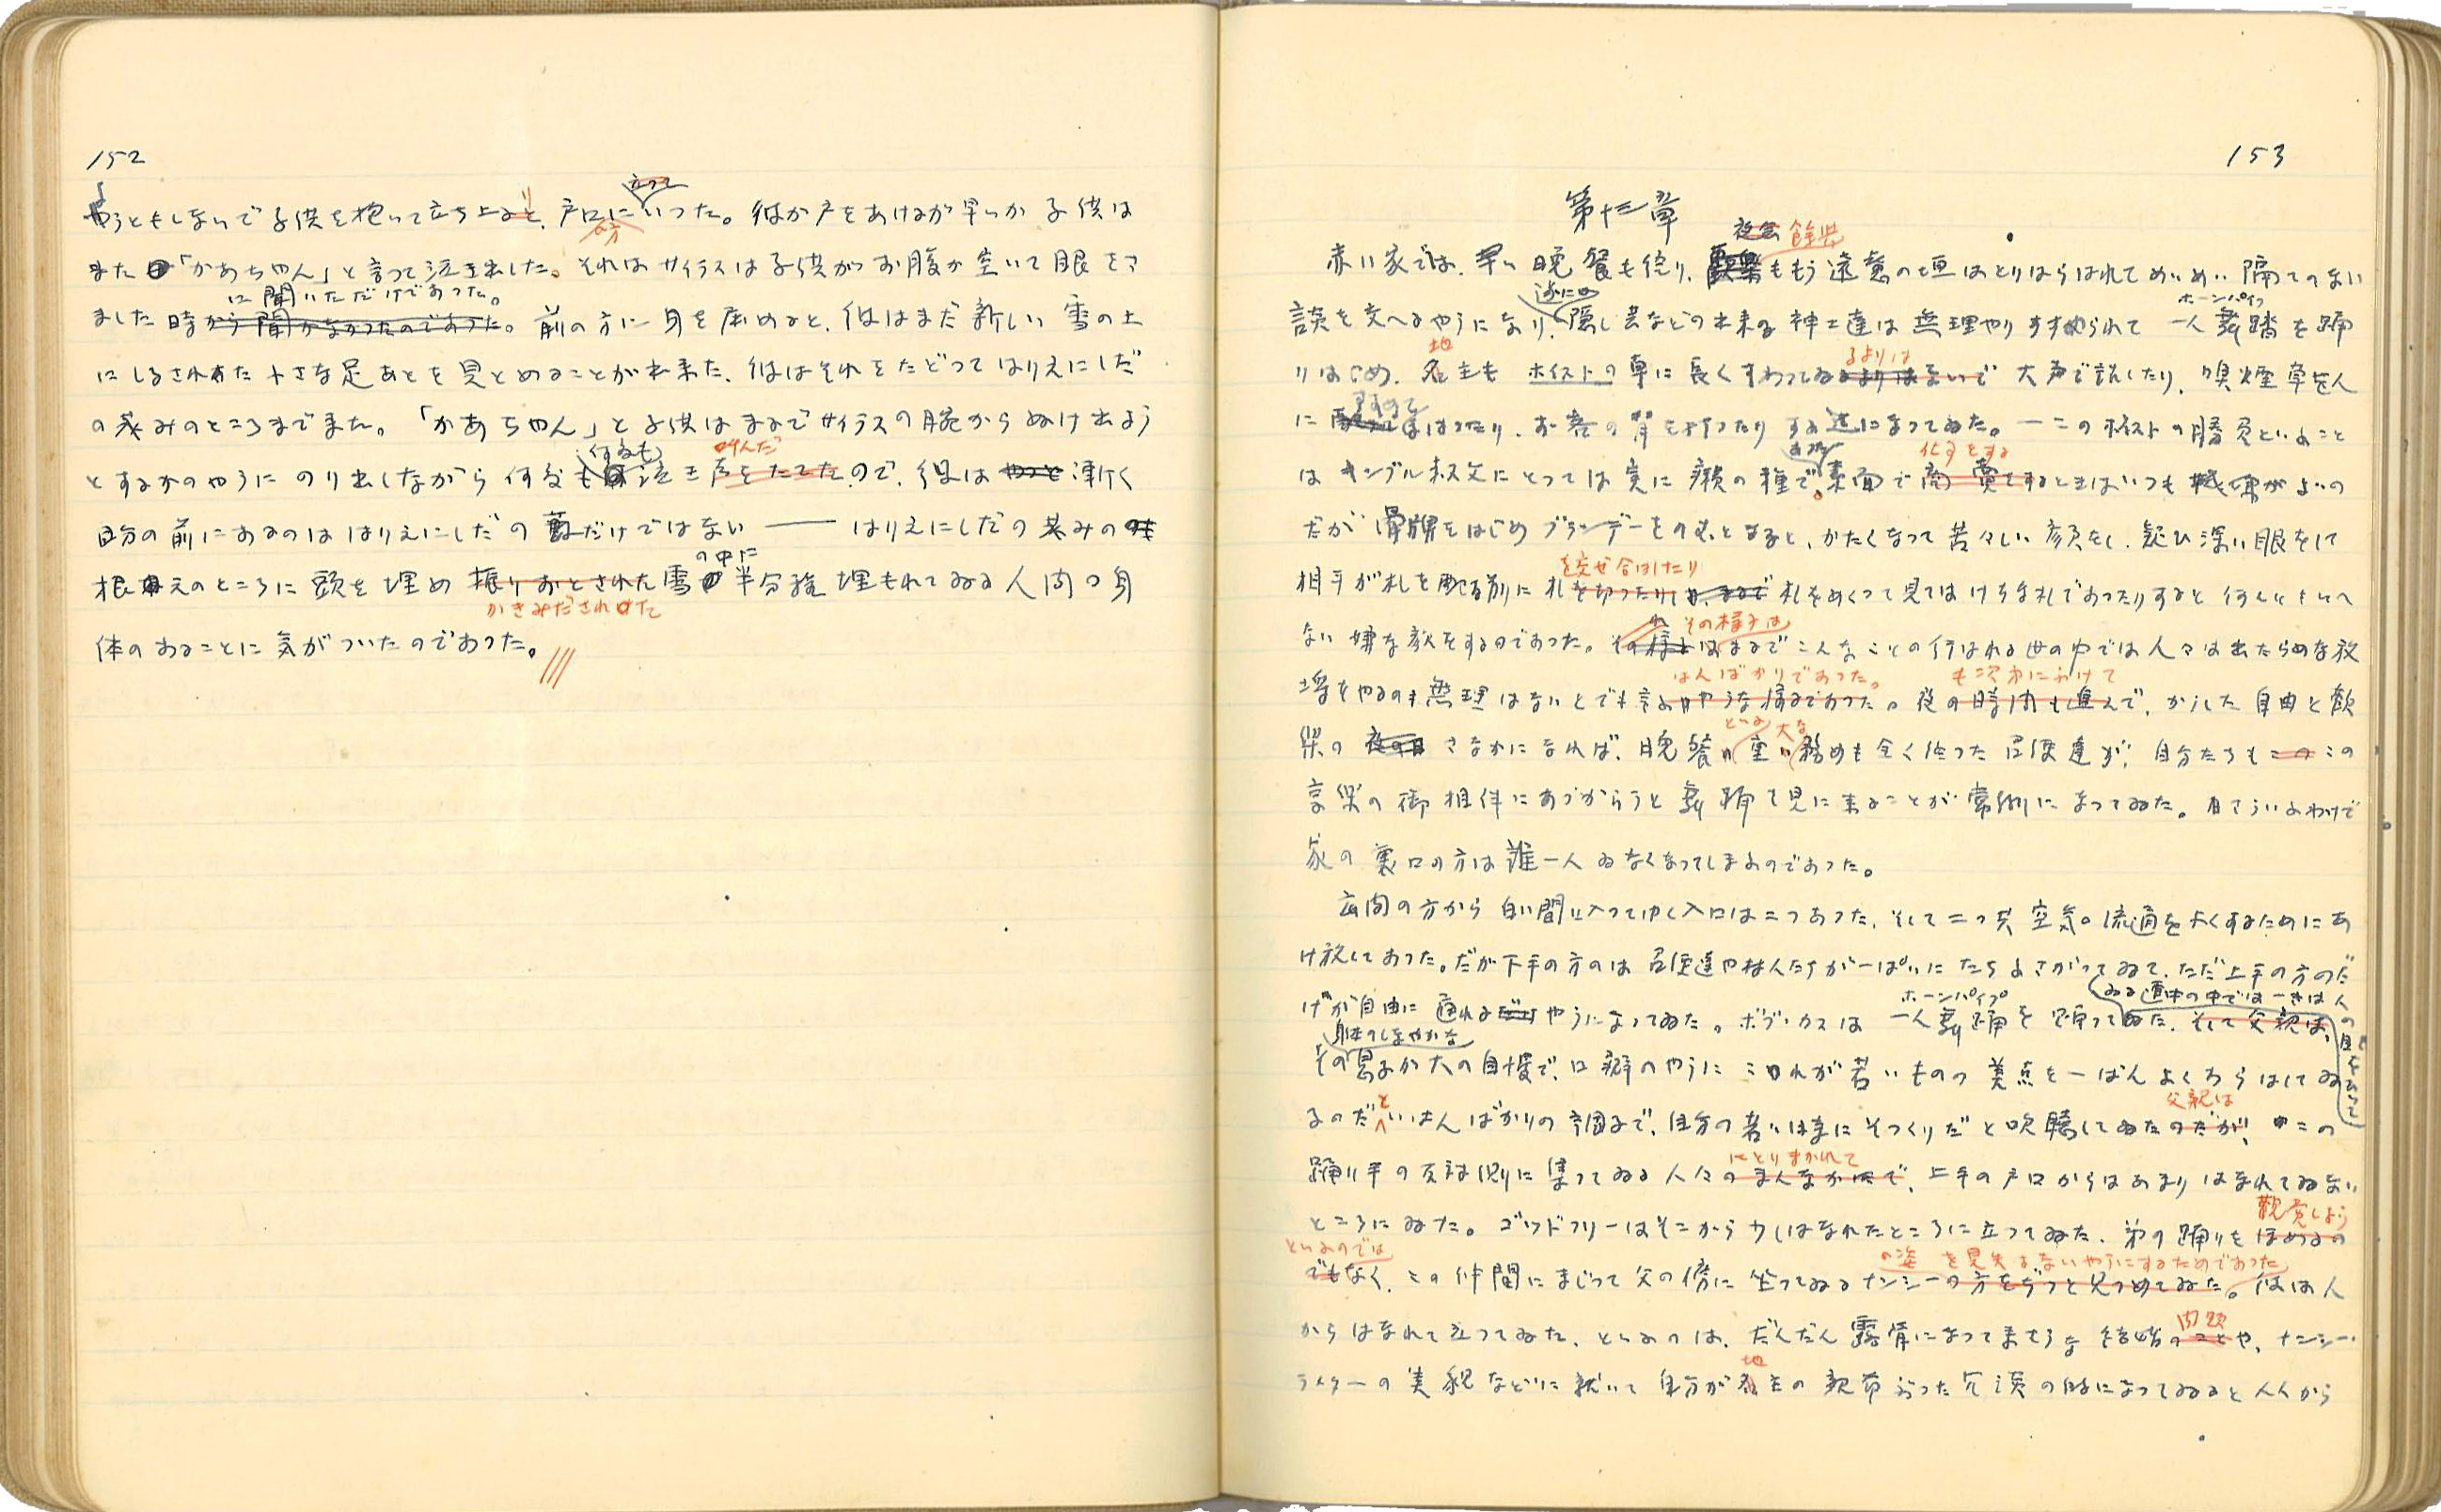 152
うともしないで子供を抱いて立ち上ると、戸口に立っていつた。彼が戸をあけるが早いか子供は
また「かあちやん」と言つて泣き出した。それはサイラスは子供がお腹が空いて眼をさ
に聞いただけであつた。
ました時から聞かなかつたのであつた。前の方に身を屈めると、彼はまだ新しい雪の上
にしるされた小さな足あとを見とめることが出来た、彼はそれをたどつてはりえにしだ
の茂みのところまできた。「かあちやん」と子供はまるでサイラスの腕からぬけ出よう
叫んだ
とするかのやうにのり出しながら何度も泣き声をたてたので、彼はやつと漸く
自分の前にあるのははりえにしだの叢だけではない――はりえにしだの茂みの
の中に
根元のところに頭を埋め振りおとされた雪半分程埋もれてゐる人間の身
かきみだされた
体のあることに気がついたのであつた。
153
第十三章
夜会 餘興
赤い家では、早い晩餐も終り、歓楽ももう遠慮の垣はとりはらはれてめいめい隔てのない
遂には ホーンパイプ
談を交へるやうになり、隠し芸などの出来る紳士達は無理やりすすめられて一人舞踏を踊
地 るよりは
りはじめ、名主もホイストの卓に長くすわつてゐるよりはないで大声で話したり、嗅煙草を人
すすめて
にまはつたり、お客の背を打つたりする迄になつてゐた。―このホイストの勝負といふこと
仕事をする
はキンブル叔父にとつては実に癪の種で、素面で商売するときはいつも機嫌がよいの
だが骨牌をはじめブランデーをのむとなると、かたくなつて苦々しい顔をし、疑ひ深い眼をして
を交ぜ合はしたり
相手が札を配る前に札を切つたりしは、まるで札をめくつて見てはけちな札であつたりすると何んともいへ
その様子は
ない嫌な顔をするのであつた。その様子はまるでこんなことの行はれる世の中では人々は出たらめな放
はんばかりであつた。 も次第にふけて
埒をやるのも無理はないとでも言ふやうな様子であつた。夜の時間も進んで、かうした自由と歓
といふ 大な
楽のさなかになれば、晩餐の重い務めも全く終つた召使達が、自分たちもこのこの
享楽の御相伴にあづからうと舞踊を見に来ることが常例になつてゐた。さういふわけで
家の裏口の方は誰一人ゐなくなつてしまふのであつた。
玄関の方から白い間に入つてゆく入口は二つあつた、そして二つ共空気の流通をよくするためにあ
け放してあつた。だが下手の方のは召使達や村人たちが一ぱいにたちふさがつてゐて、ただ上手の方のだ
ホーンパイプ ゐる連中の中では一きは人の目をひいて
けが自由に通れるやうになつてゐた。ボブ・カスは一人舞踊を踊つてゐた、そして父親は、
身体のしなやかな
その息子が大の自慢で、口癖のやうにこれが若いものの美点を一ばんよくあらはしてゐ
と 父親は
るのだといはんばかりの調子で、自分の若い時にそつくりだと吹聴してゐたのだが、この
にとりまかれて
踊り手の反対側に集つてゐる人々のまんなかで、上手の戸口からはあまりはなれてゐない
観覚しよう
ところにゐた。ゴツドフリーはそこから少しはなれたところに立つてゐた、弟の踊りをほめるの
といふのでは の姿を見失はないやうにするためであつた
でもなく、この仲間にまじつて父の傍に坐つてゐるナンシーの方をぢつと見つめてゐた。彼は人
問題
からはなれて立つてゐた、といふのは、だんだん露骨になつてきさうな結婚のことや、ナンシー・
地
ラメターの美貌などに就いて自分が名主の親爺ぶつた冗談の的になつてゐると人から